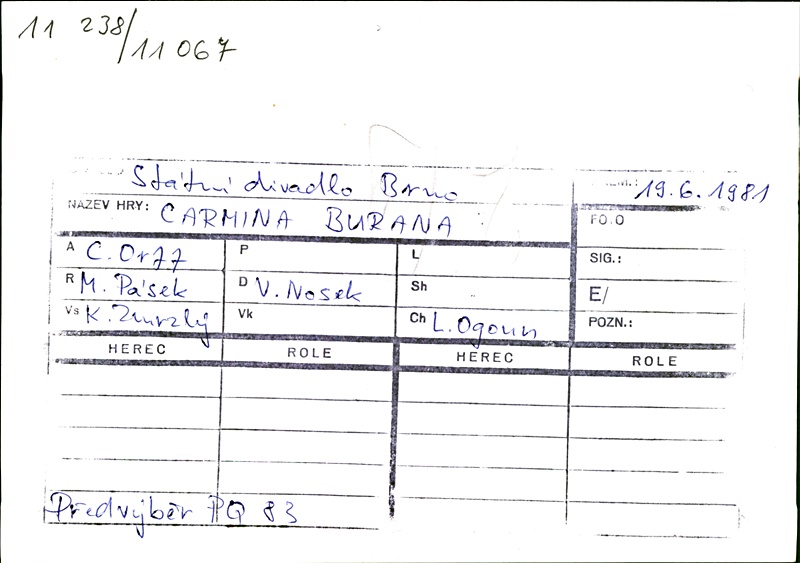 11 238/
11 067
Státní divadlo Brno
19.6.1981
NÁZEV HRY: CARMINA BURANA
FO.O
A C. Orff P L SIG.:
R M. Pásek D V. Nosek Sh E/
Vs K. Zmrzlý Vk Ch L. Ogoun POZN.:
HEREC ROLE HEREC ROLE
Předvýběr PQ 83